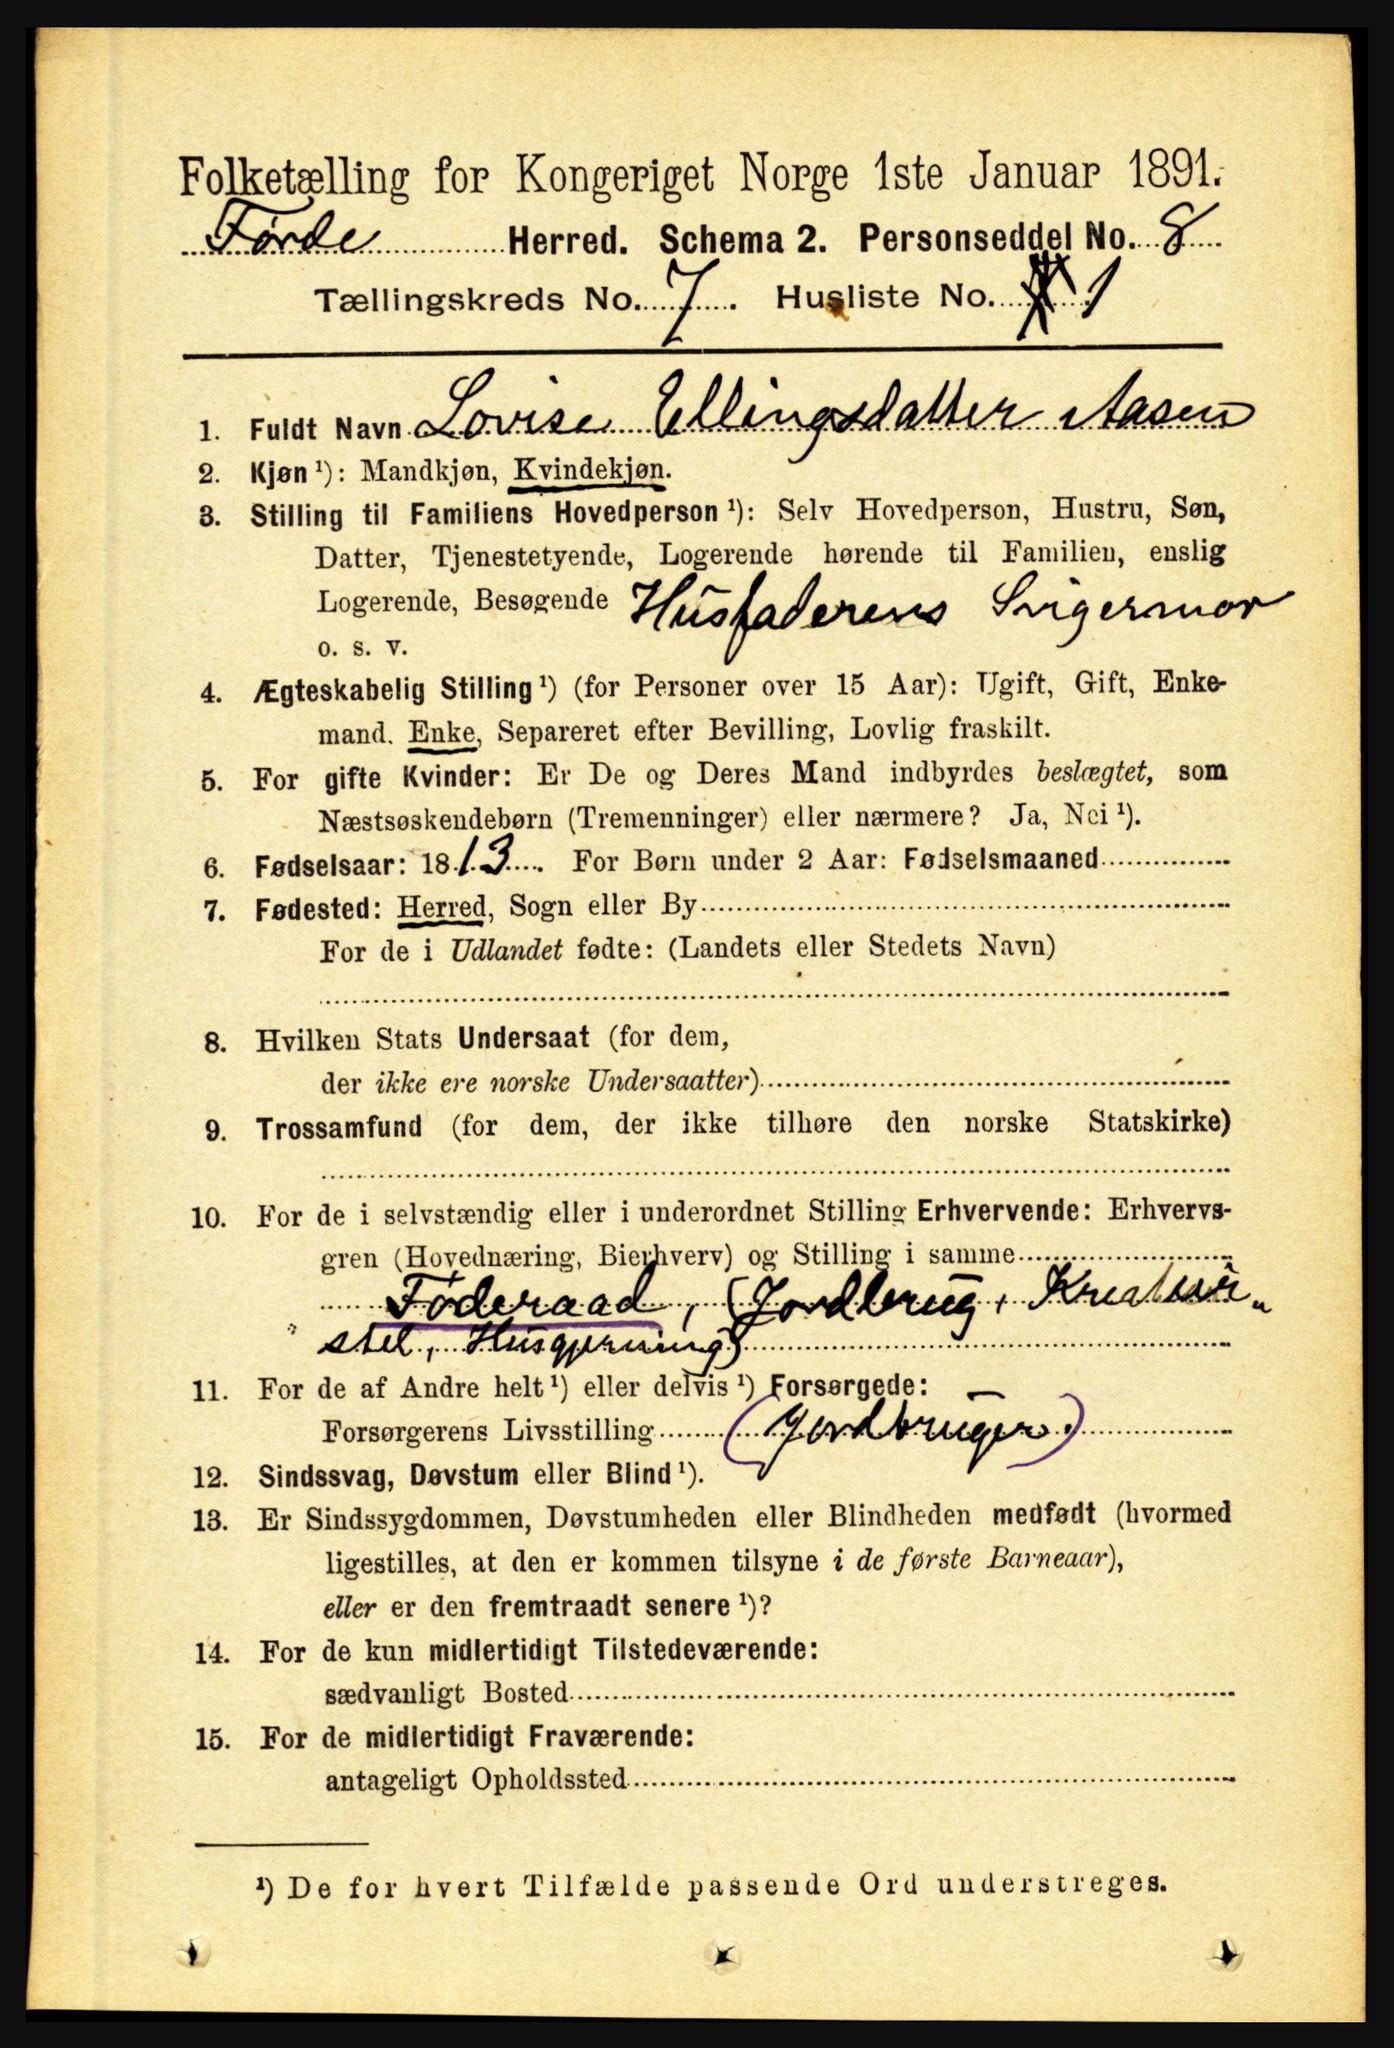 Folketælling for Kongeriget Norge 1ste Januar 1891.
Førde Herred. Schema 2. Personseddel No. 8
Tællingskreds No. 7. Husliste No. 1
1. Fuldt Navn Lovise Ellingsdatter Aasen
2. Kjøn ¹): Mandkjøn, Kvindekjøn.
3. Stilling til Familiens Hovedperson ¹): Selv Hovedperson, Hustru, Søn,
Datter, Tjenestetyende, Logerende hørende til Familien, enslig
Logerende, Besøgende Husfaderens Svigermor
o. s. v.
4. Ægteskabelig Stilling ¹) (for Personer over 15 Aar): Ugift, Gift, Enke-
mand. Enke, Separeret efter Bevilling, Lovlig fraskilt.
5. For gifte Kvinder: Er De og Deres Mand indbyrdes beslægtet, som
Næstsøskendebørn (Tremenninger) eller nærmere? Ja, Nei ¹).
6. Fødselsaar: 1813. For Børn under 2 Aar: Fødselsmaaned
7. Fødested: Herred, Sogn eller By
For de i Udlandet fødte: (Landets eller Stedets Navn)
8. Hvilken Stats Undersaat (for dem,
der ikke ere norske Undersaatter)
9. Trossamfund (for dem, der ikke tilhøre den norske Statskirke)
10. For de i selvstændig eller i underordnet Stilling Erhvervende: Erhvervs-
gren (Hovednæring, Bierhverv) og Stilling i samme
Føderaad, (Jordbrug, Kreatur"
"stel, Husgjerning)
11. For de af Andre helt ¹) eller delvis ¹) Forsørgede:
Forsørgerens Livsstilling (Jordbruger.)
12. Sindssvag, Døvstum eller Blind ¹).
13. Er Sindssygdommen, Døvstumheden eller Blindheden medfødt (hvormed
ligestilles, at den er kommen tilsyne i de første Barneaar),
eller er den fremtraadt senere ¹)?
14. For de kun midlertidigt Tilstedeværende:
sædvanligt Bosted
15. For de midlertidigt Fraværende:
antageligt Opholdssted
¹) De for hvert Tilfælde passende Ord understreges.